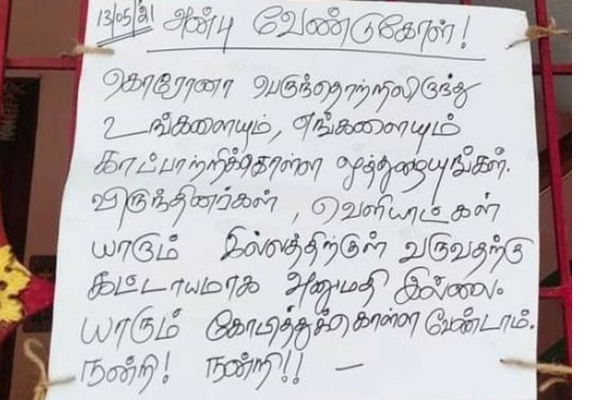 13/05/21 அன்பு வேண்டுகோள்!
கொரோனா பெருந்தொற்றிலிருந்து
உங்களையும், எங்களையும்
காப்பாற்றிக்கொள்ள ஒத்துழையுங்கள்.
விருந்தினர்கள், வெளியாட்கள்
யாரும் இல்லத்திற்குள் வருவதற்கு
கட்டாயமாக அனுமதி இல்லை.
யாரும் கோபித்துக்கொள்ள வேண்டாம்.
நன்றி! நன்றி!! —